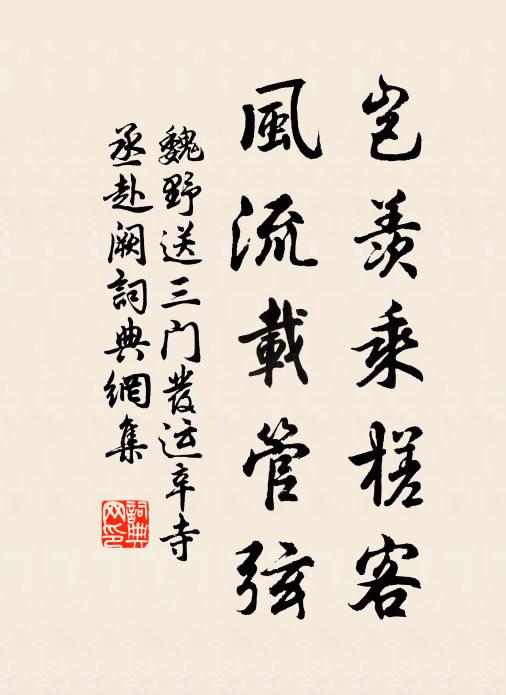 豈羨乘槎客
風流載管弦
魏野送三门發运辛寺
丞赴阙詞典網集
詞典网印